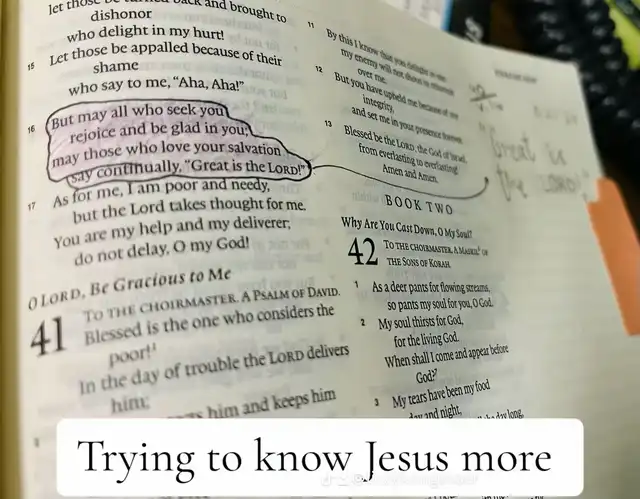 let those be turned back and brought to
dishonor
who delight in my hurt!
15 Let those be appalled because of their
shame
who say to me, “Aha, Aha!”
16 But may all who seek you
rejoice and be glad in you;
may those who love your salvation
say continually, “Great is the LORD!”
17 As for me, I am poor and needy,
but the Lord takes thought for me.
You are my help and my deliverer;
do not delay, O my God!
O LORD, Be Gracious to Me
41 TO THE CHOIRMASTER. A PSALM OF DAVID.
Blessed is the one who considers the
poor!
In the day of trouble the LORD delivers
him;
him and keeps him
11 By this I know that you delight in me:
my enemy will not shout in triumph
over me.
12 But you have upheld me because of my
integrity,
and set me in your presence forever.
13 Blessed be the LORD, the God of Israel,
from everlasting to everlasting!
Amen and Amen.
BOOK TWO
Why Are You Cast Down, O My Soul?
42 TO THE CHOIRMASTER. A MASKIL OF
THE SONS OF KORAH.
1 As a deer pants for flowing streams,
so pants my soul for you, O God.
2 My soul thirsts for God,
for the living God.
When shall I come and appear before
God?
3 My tears have been my food
day and night,
all the day long,
"Great is
the LORD!"
Trying to know Jesus more